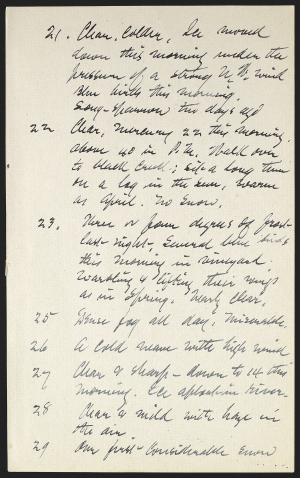 21. Clear, colder, Ice moved
down this morning under the
pressure of a strong N.W. wind
Blue birds this morning.
Song-sparrow two days ago
22 Clear, mercury 22 this morning,
above 40 in P.M. Walk over
to black creek; sit a long time
on a log in the sun, warm
as April. No snow,
23. Three or four degrees of frost
last night, several blue birds
this morning in vineyard;
warbling & lifting their wings
as in Spring. Nearly clear,
25 Dense fog all day. Miserable.
26 A cold wave with high wind
27 Clear & sharp - down to 14 this
morning. Ice afloat in river.
28 Clear & mild with haze in
the air
29 Our first considerable snow